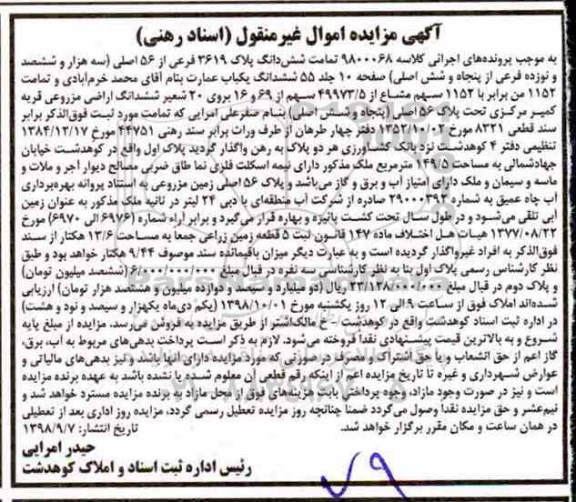 آگهی مزایده اموال غیرمنقول (اسناد رهنی)
به موجب پرونده‌های اجرائی کلاسه ۹۸۰۰۰۶۸ تمامت شش‌دانگ پلاک ۳۶۱۹ فرعی از ۵۶ اصلی (سه هزار و ششصد
و نوزده فرعی از پنجاه و شش اصلی) صفحه ۱۰ جلد ۵۵ ششدانگ یکباب عمارت بنام آقای محمد خرم‌آبادی و تمامت
۱۱۵۲ من برابر با ۱۱۵۲ سهم مشاع از ۴۹۹۷۳/۵ سهم از ۶۹ و ۱۶ بروی ۲۰ شعیر ششدانگ اراضی مزروعی قریه
کمیر مرکزی تحت پلاک ۵۶ اصلی (پنجاه و شش اصلی) بنام صفرعلی امرایی که تمامت مورد ثبت فوق‌الذکر برابر
سند قطعی ۸۳۲۱ مورخ ۱۳۵۲/۷/۰۲ دفتر چهار طرهان از طرف وراث برابر سند رهنی ۴۴۷۵۱ مورخ ۱۳۸۴/۱۲/۱۷
تنظیمی دفتر ۴ کوهدشت نزد بانک کشاورزی هر دو پلاک به رهن واگذار گردید پلاک اول واقع در کوهدشت خیابان
جهادشمالی به مساحت ۱۴۹/۵ مترمربع ملک مذکور دارای نیمه اسکلت فلزی نما طاق ضربی مصالح دیوار آجر و ملات و
ماسه و سیمان و ملک دارای امتیاز آب و برق و گاز می‌باشد و پلاک ۵۶ اصلی زمین مزروعی به استناد پروانه بهره‌برداری
آب چاه عمیق به شماره ۲۹۰۰۰۳۹۲ صادره از شرکت آب منطقه‌ای با دبی ۲۴ لیتر در ثانیه ملک مذکور به عنوان زمین
آبی تلقی می‌شود و در طول سال تحت کشت پائیزه و بهاره قرار می‌گیرد و برابر آراء شماره (۶۹۷۶ الی ۶۹۷۰) مورخ
۱۳۷۷/۰۸/۲۲ هیات حل اختلاف ماده ۱۴۷ قانون ثبت ۵ قطعه زمین زراعی جمعا به مساحت ۱۳/۶ هکتار از سند
فوق‌الذکر به افراد غیرواگذار گردیده است و به عبارت دیگر میزان باقیمانده سند موصوف ۹/۴۴ هکتار خواهد بود و طبق
نظر کارشناس رسمی پلاک اول بنا به نظر کارشناسی سه نفره در قبال مبلغ ۶/۰۰۰/۰۰۰/۰۰۰ (ششصد میلیون تومان)
و پلاک دوم در قبال مبلغ ۲۳/۱۲۸/۰۰۰/۰۰۰ ریال (دو میلیارد و سیصد و دوازده میلیون و هشتصد هزار تومان) ارزیابی
شده‌اند املاک فوق از ساعت ۹ الی ۱۲ روز یکشنبه مورخ ۱۳۹۸/۱۰/۰۱ (یکم دی‌ماه یکهزار و سیصد و نود و هشت)
در اداره ثبت اسناد کوهدشت واقع در کوهدشت – خ مالک‌اشتر از طریق مزایده به فروش می‌رسد. مزایده از مبلغ پایه
شروع و به بالاترین قیمت پیشنهادی نقداً فروخته می‌شود. لازم به ذکر است پرداخت بدهی‌های مربوط به آب، برق،
گاز اعم از حق انشعاب و یا حق اشتراک و مصرف در صورتی که مورد مزایده دارای آنها باشد و نیز بدهی‌های مالیاتی و
عوارض شهرداری و غیره تا تاریخ مزایده اعم از اینکه رقم قطعی آن معلوم شده یا نشده باشد به عهده برنده مزایده
است و نیز در صورت وجود مازاد، وجوه پرداختی بابت هزینه‌های فوق از محل مازاد به برنده مزایده مسترد خواهد شد و
نیم‌عشر و حق مزایده نقدا وصول می‌گردد ضمنا چنانچه روز مزایده تعطیل رسمی گردد، مزایده روز اداری بعد از تعطیلی
در همان ساعت و مکان مقرر برگزار خواهد شد. تاریخ انتشار: ۱۳۹۸/۹/۷
حیدر امرایی
رئیس اداره ثبت اسناد و املاک کوهدشت